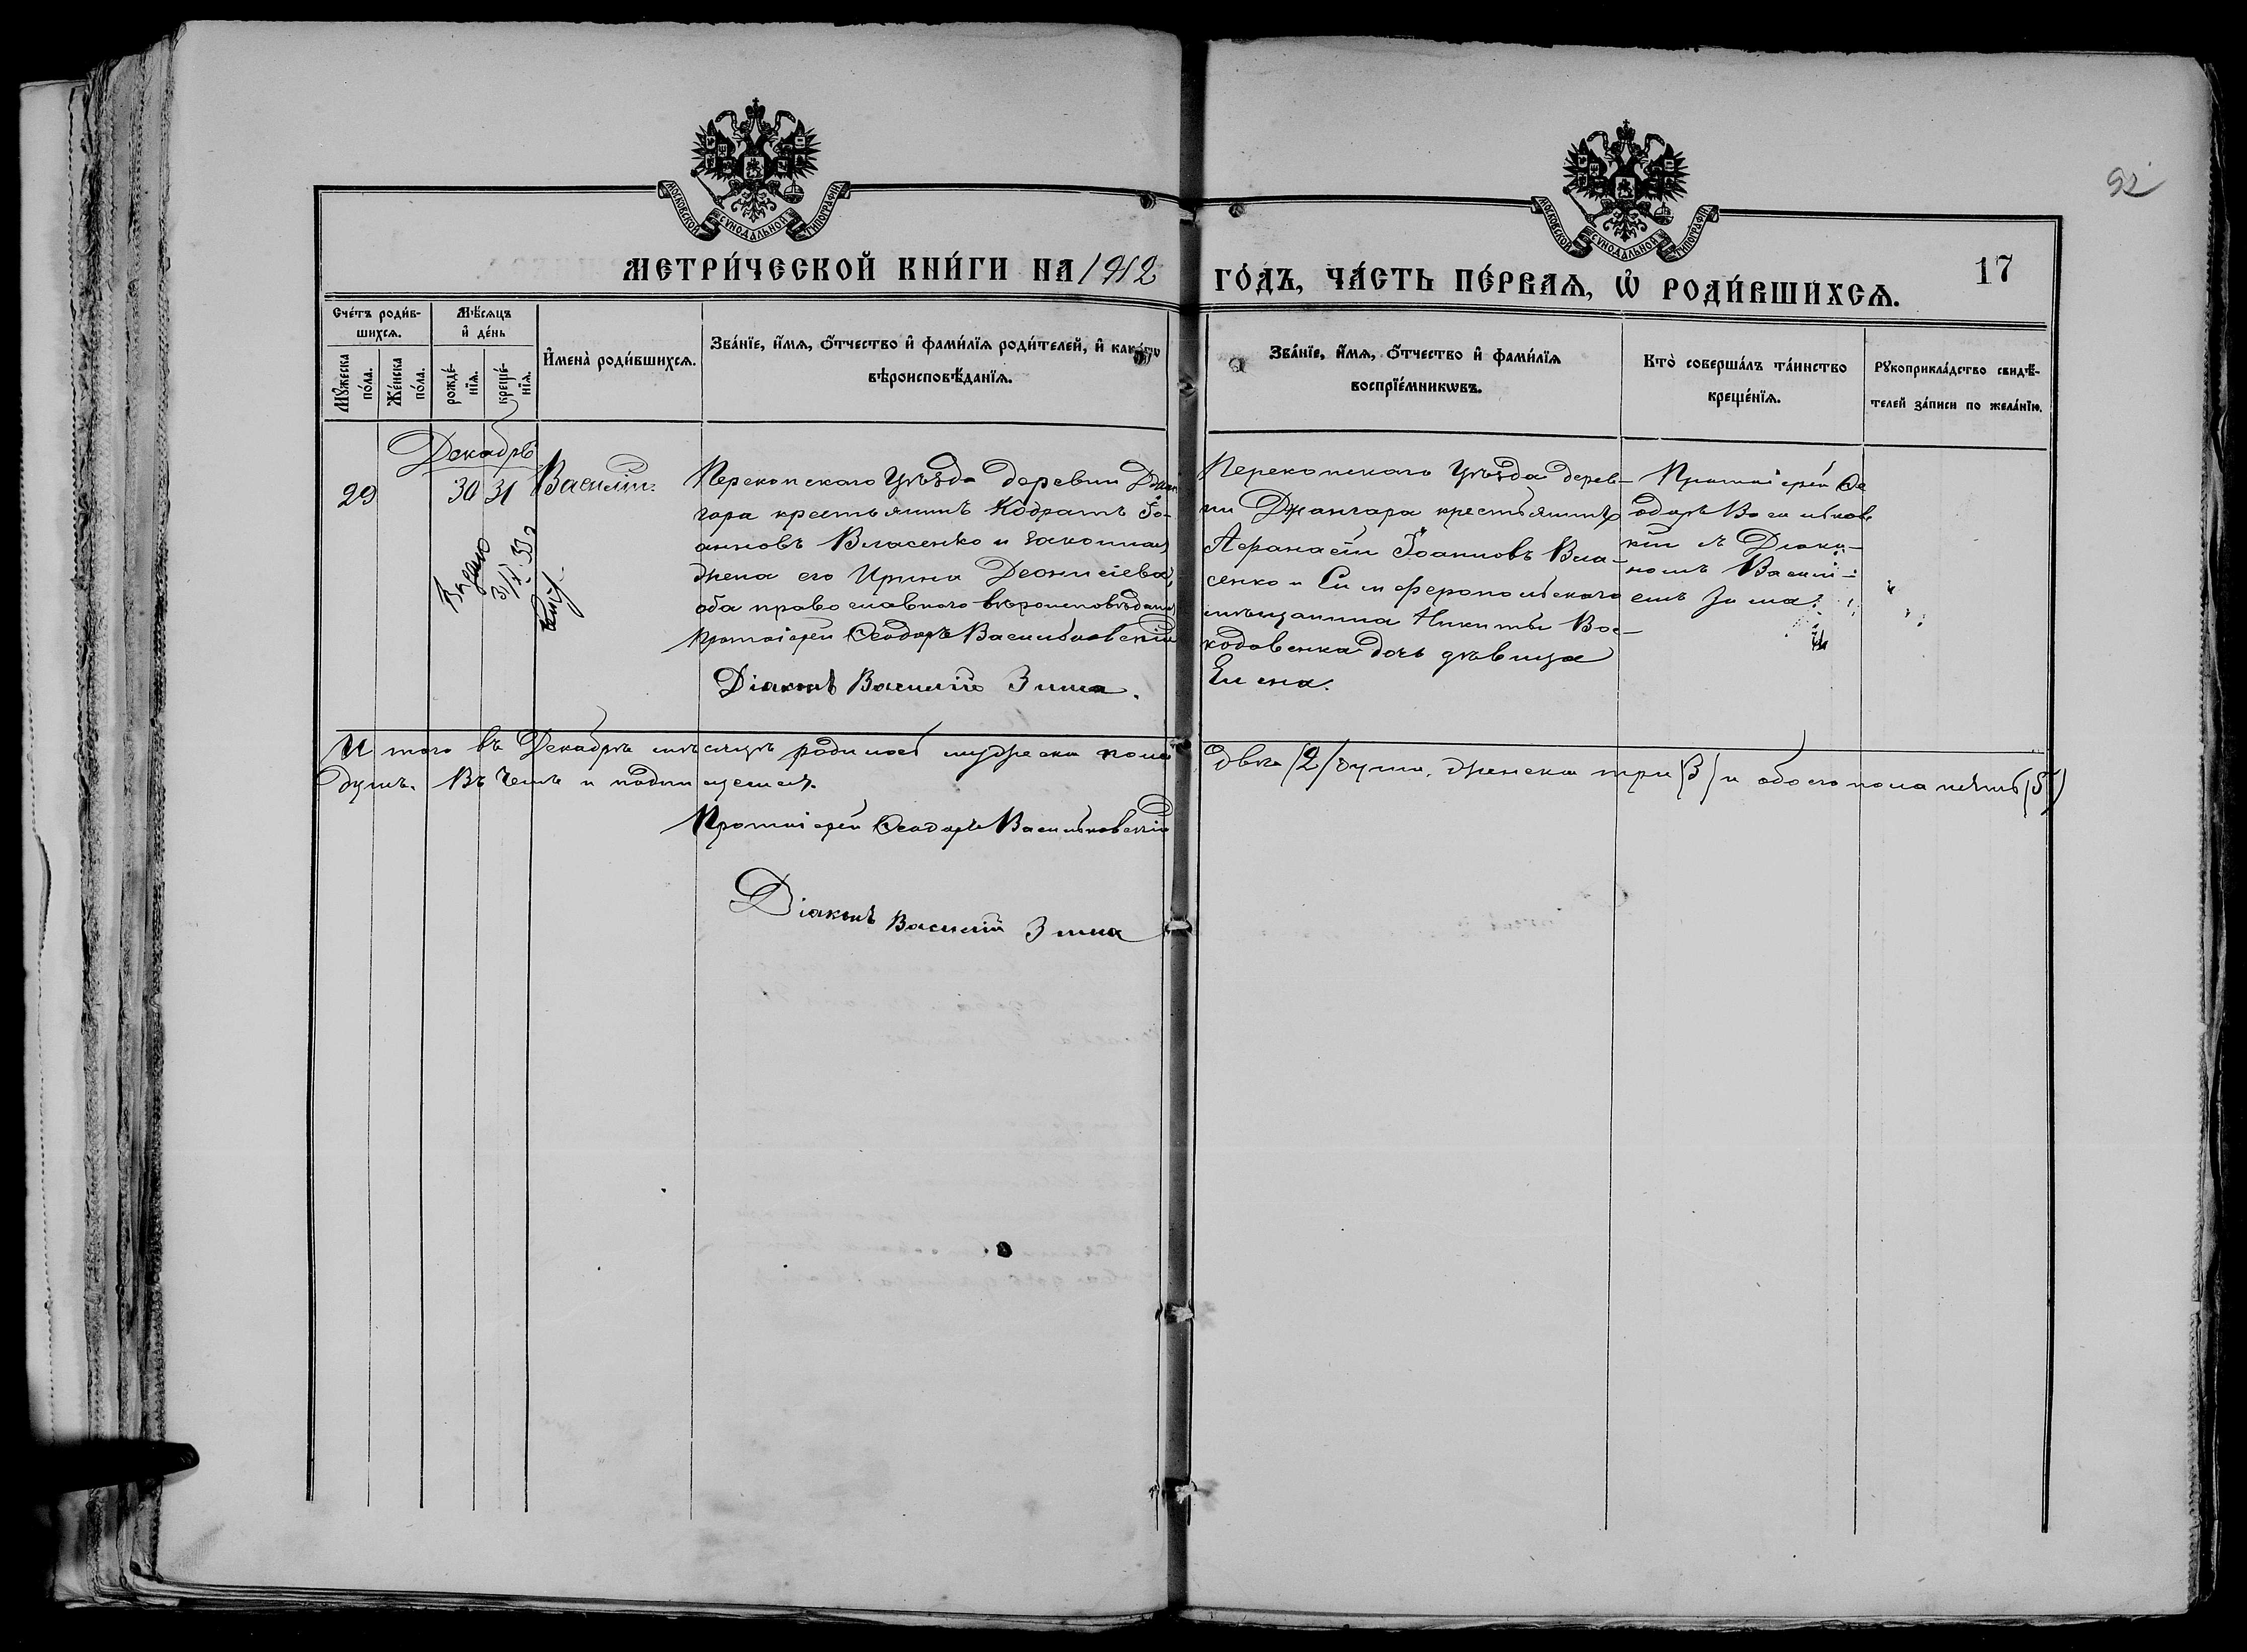 92
МОСКОВСКОЙ СѴНОДАЛЬНОЙ ТИПОГРАФІИ
МОСКОВСКОЙ СѴНОДАЛЬНОЙ ТИПОГРАФІИ
МЕТРИ́ЧЕСКОЙ КНИ́ГИ НА 1912
ГО́ДЪ, ЧА́СТЬ ПЕ́РВАѦ, Ѡ҆ РОДИ́ВШИХСѦ.
17
Сче́тъ роди́в-
шихсѧ.
Мꙋ́жеска
по́ла.
Же́нска
по́ла.
Мѣ́сѧцъ
и҆ де́нь
рожде́-
нїѧ.
креще́-
нїѧ.
И҆мена̀ роди́вшихсѧ.
Зва́нїе, и҆́мѧ, ѻ҆́тчество и҆ фами́лїѧ роди́телей, и҆ како́гѡ
вѣроисповѣ́данїѧ.
Зва́нїе, и҆́мѧ, ѻ҆́тчество и҆ фами́лїѧ
воспрїе́мникѡвъ.
Кто̀ соверша́лъ та́инство
креще́нїѧ.
Рꙋкоприкла́дство свидѣ́-
телей за́писи по жела́нїю.
Декабрь
29
30 31
Василій.
Перекопскаго Уѣзда деревни Джан
гара крестьянинъ Кодратъ Іо-
анновъ Власенко и законная
жена его Ирина Деонисіева,
оба православнаго вѣроисповѣданія
Протоіерей Ѳеодоръ Васильковскій
Діаконъ Василій Зима.
Перекопскаго Уѣзда дерев-
ни Джангара крестьянинъ
Аѳанасій Іоанновъ Вла-
сенко и Симферопольскаго
мѣщанина Никиты Вос-
кодовенка дочь дѣвица
Елена.
Протоіерей Ѳе
одоръ Васильковс
кій съ Діако-
номъ Василі-
емъ Зима.
Итого въ Декабрѣ мѣсяцѣ родилось мужеска пола
два (2) души, женска три (3) и обоего пола пять (5)
душъ. Въ чемъ и подписуемся.
Протоіерей Ѳеодоръ Васильковскій
Діаконъ Василій Зима